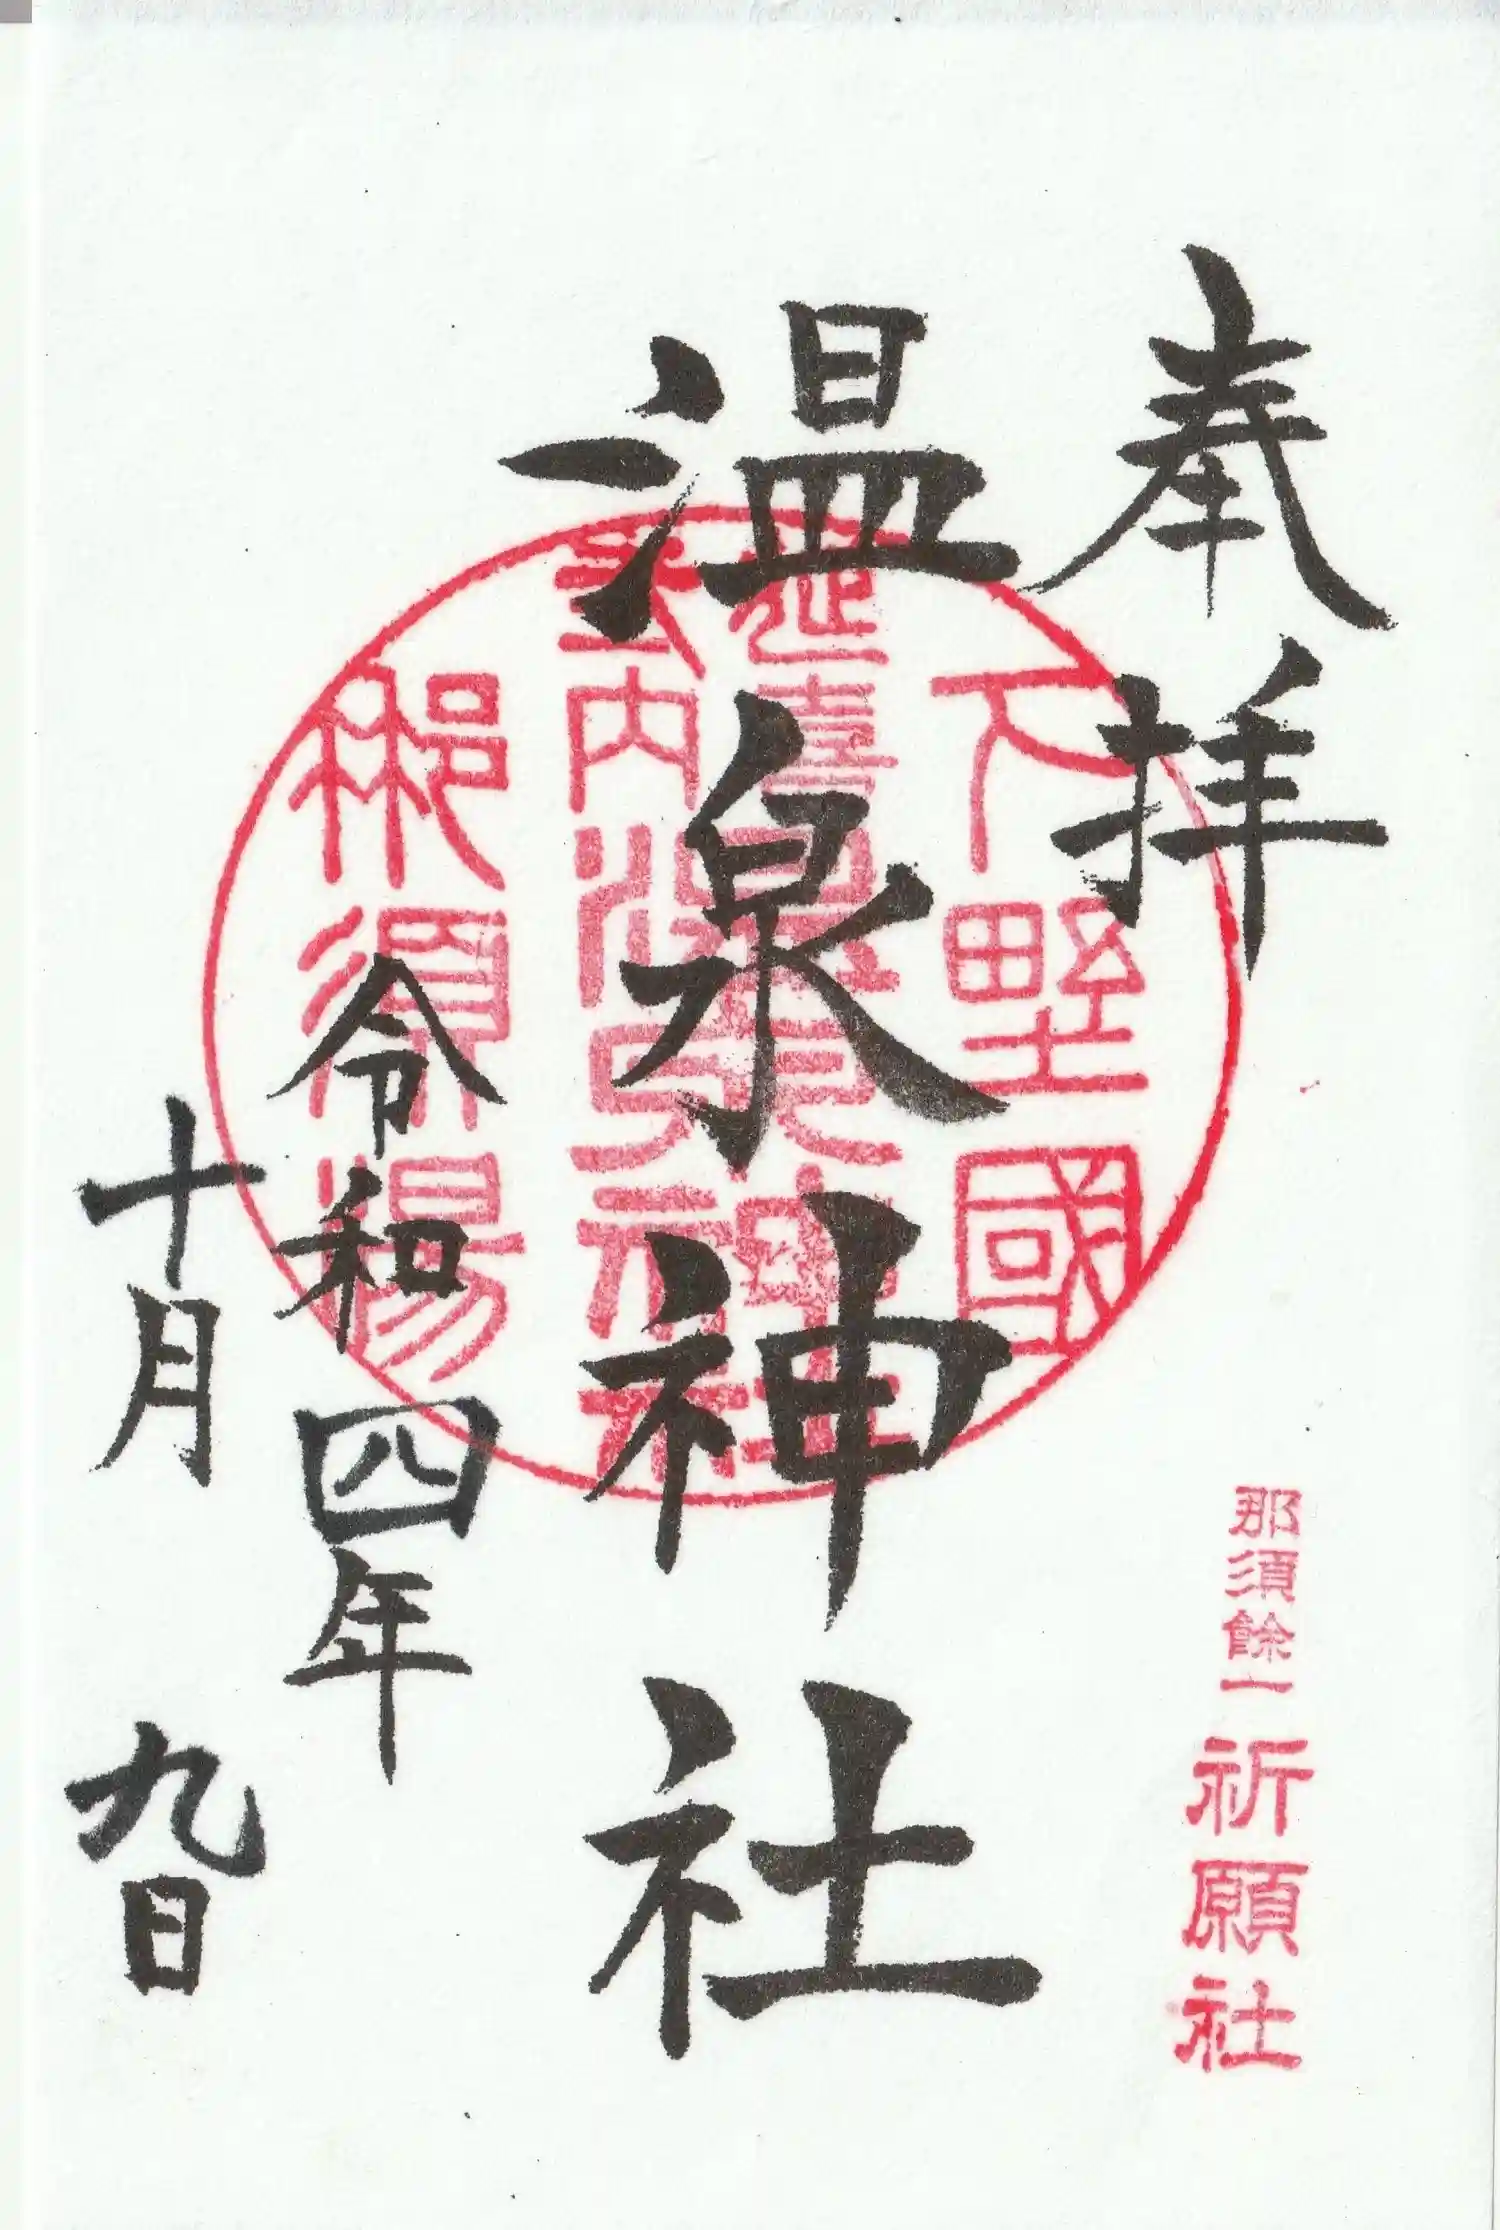 奉拝
那須餘一祈願社
温泉神社
令和四年
十月九日
下野國
延喜
式内
温泉神社
那須湯